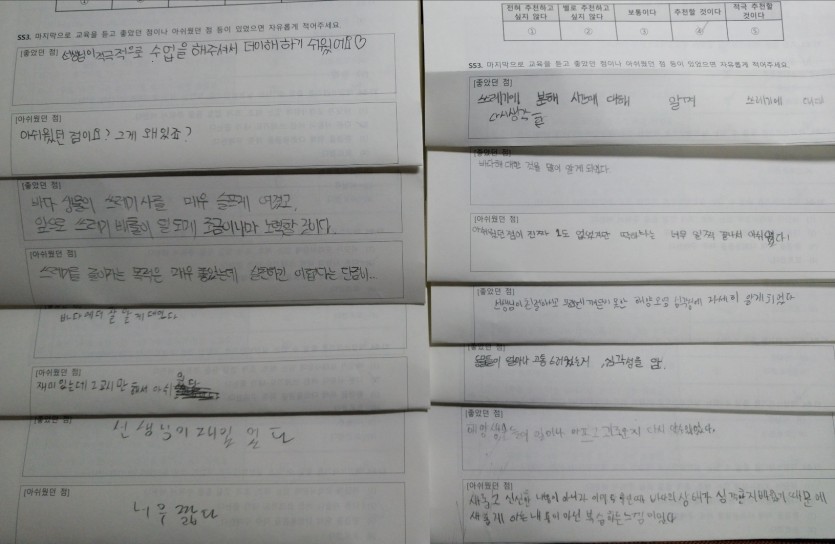 SS3. 마지막으로 교육을 듣고 좋았던 점이나 아쉬웠던 점 등이 있었으면 자유롭게 적어주세요.
[좋았던 점]
선생님이 적극적으로 수업을 해주셔서 더 이해하기 쉬웠어요♡
[아쉬웠던 점]
아쉬웠던 점이요? 그게 왜있죠?
[좋았던 점]
바다 생물이 쓰레기 사를 매우 슬프게 여겼고,
앞으로 쓰레기 배출이 덜 되게 조금이나마 노력할 것이다.
[아쉬웠던 점]
쓰레기를 줄이자는 목적은 매우 좋았는데 실천하긴 어렵다는 단점이...
바다에 더 잘 알게 되었다.
[아쉬웠던 점]
재미있는데 2교시만 해서 아쉬웠다
[좋았던 점]
선생님이 재밌었다
[아쉬웠던 점]
너무 짧다
전혀 추천하고 싶지 않다 별로 추천하고 싶지 않다 보통이다 추천할 것이다 적극 추천할 것이다
① ② ③ ④ ⑤
SS3. 마지막으로 교육을 듣고 좋았던 점이나 아쉬웠던 점 등이 있었으면 자유롭게 적어주세요.
[좋았던 점]
쓰레기에 분해 시간에 대해 알게 쓰레기에 대해
[좋았던 점]
바다에 대한 것을 많이 알게 되었다.
[아쉬웠던 점]
아쉬웠던 점이 진짜 1도 없었지만 따지자면 너무 일찍 끝나서 아쉬웠다!
[좋았던 점]
선생님이 친절하고 해양오염 심각에 자세히 알게 되었다
[좋았던 점]
동물들이 얼마나 고통스러웠는지, 심각성을 앎.
[좋았던 점]
얼마나 아프고 다시 알게되었다.
[아쉬웠던 점]
새롭고 신선한 내용이 아니라 바다의 상태가 심각한지 배웠기 때문에
새롭게 아는 내용이 아닌 복습하는 느낌이었다